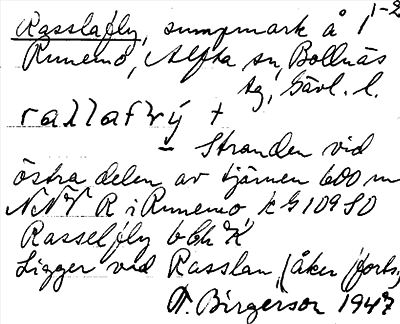 Rasslafly, sumpmark å 1 1-2
Runemo, Alfta sn, Bollnäs
tg, Gävl. l.
rallaflý +
Stranden vid
östra delen av tjärnen 600 m
NNV R i Runemo, k G 109 SO
Rasselfly bbl K
Ligger vid Rasslan, (åker forts.)
T. Birgerson 1947